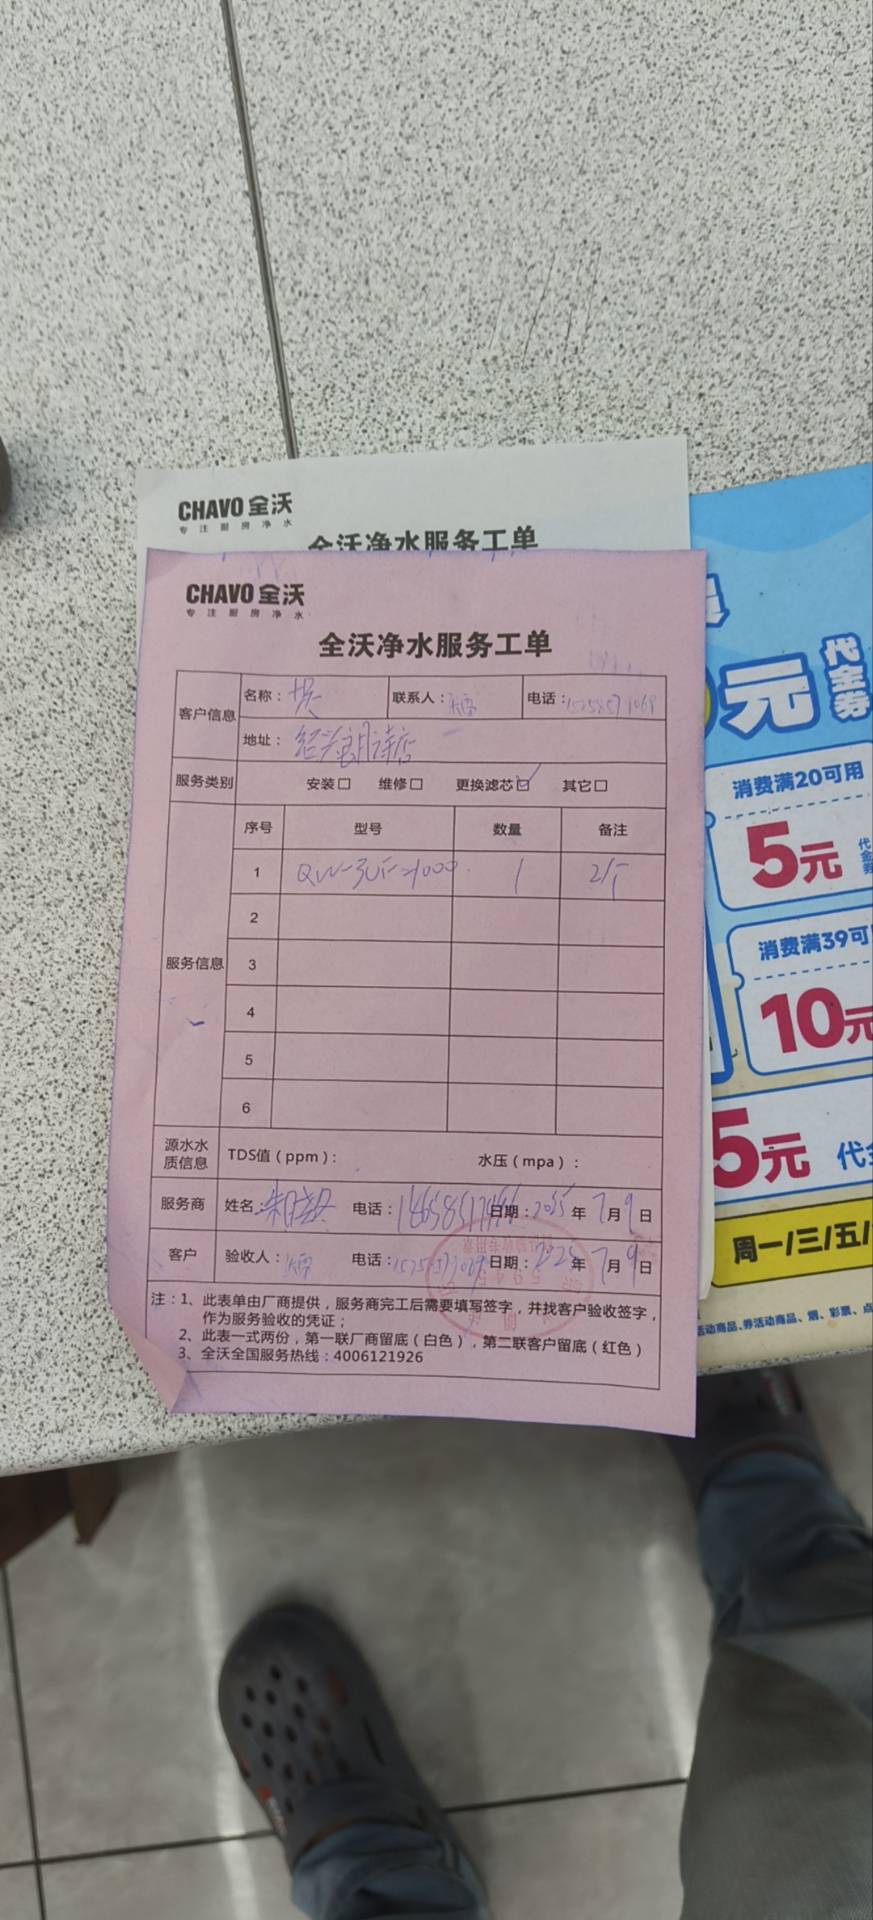 CHAVO 全沃
专注厨房净水
全沃净水服务工单
CHAVO 全沃
专注厨房净水
全沃净水服务工单
客户信息
名称：
联系人：
电话：
地址：绍兴
店
服务类别
安装□ 维修□ 更换滤芯☑ 其它□
服务信息
序号 型号 数量 备注
1 1
2
3
4
5
6
源水水质信息
TDS值（ppm）： 水压（mpa）：
服务商 姓名： 电话： 日期： 年 7月9日
客户 验收人： 电话： 日期：2025年7月9日
注：1、此表单由厂商提供，服务商完工后需要填写签字，并找客户验收签字，
作为服务验收的凭证；
2、此表一式两份，第一联厂商留底（白色），第二联客户留底（红色）
3、全沃全国服务热线：4006121926
元
代金券
消费满20可用
5元
消费满39可
10元
5元
周一/三/五/
活动商品、券活动商品、烟、彩票、点